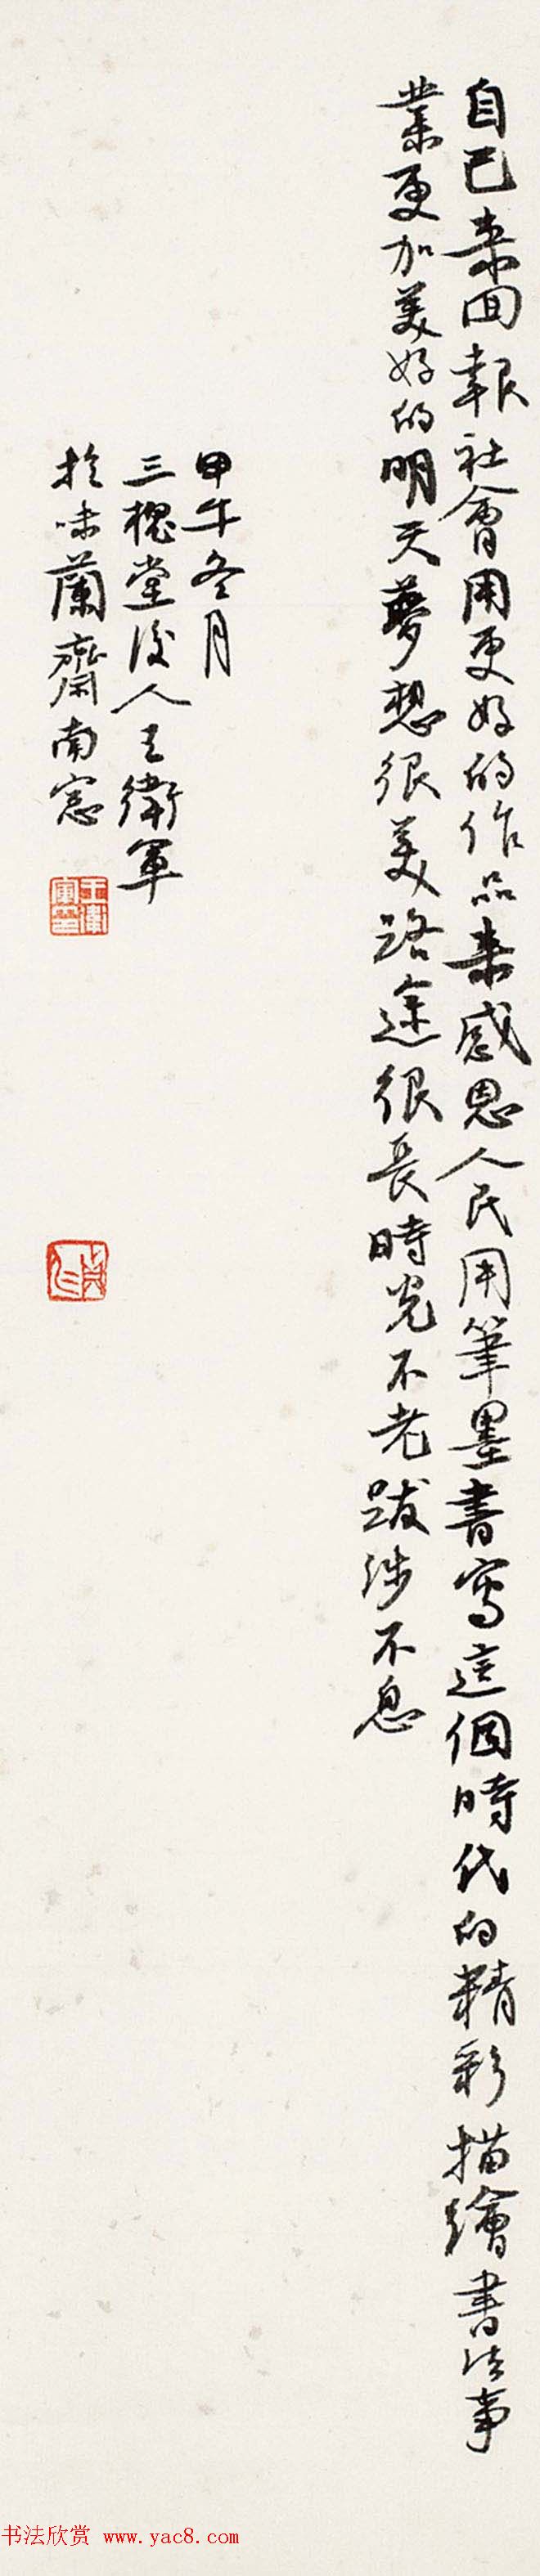 自己来回報社會用更好的作品来感恩人民用筆墨書寫這個時代的精彩描繪書法事
業更加美好的明天夢想很美路途很長時光不老跋涉不息
甲午冬月
三槐堂後人王衛軍
於味蘭齋南窓
王衛軍璽
书法欣赏 www.yac8.com